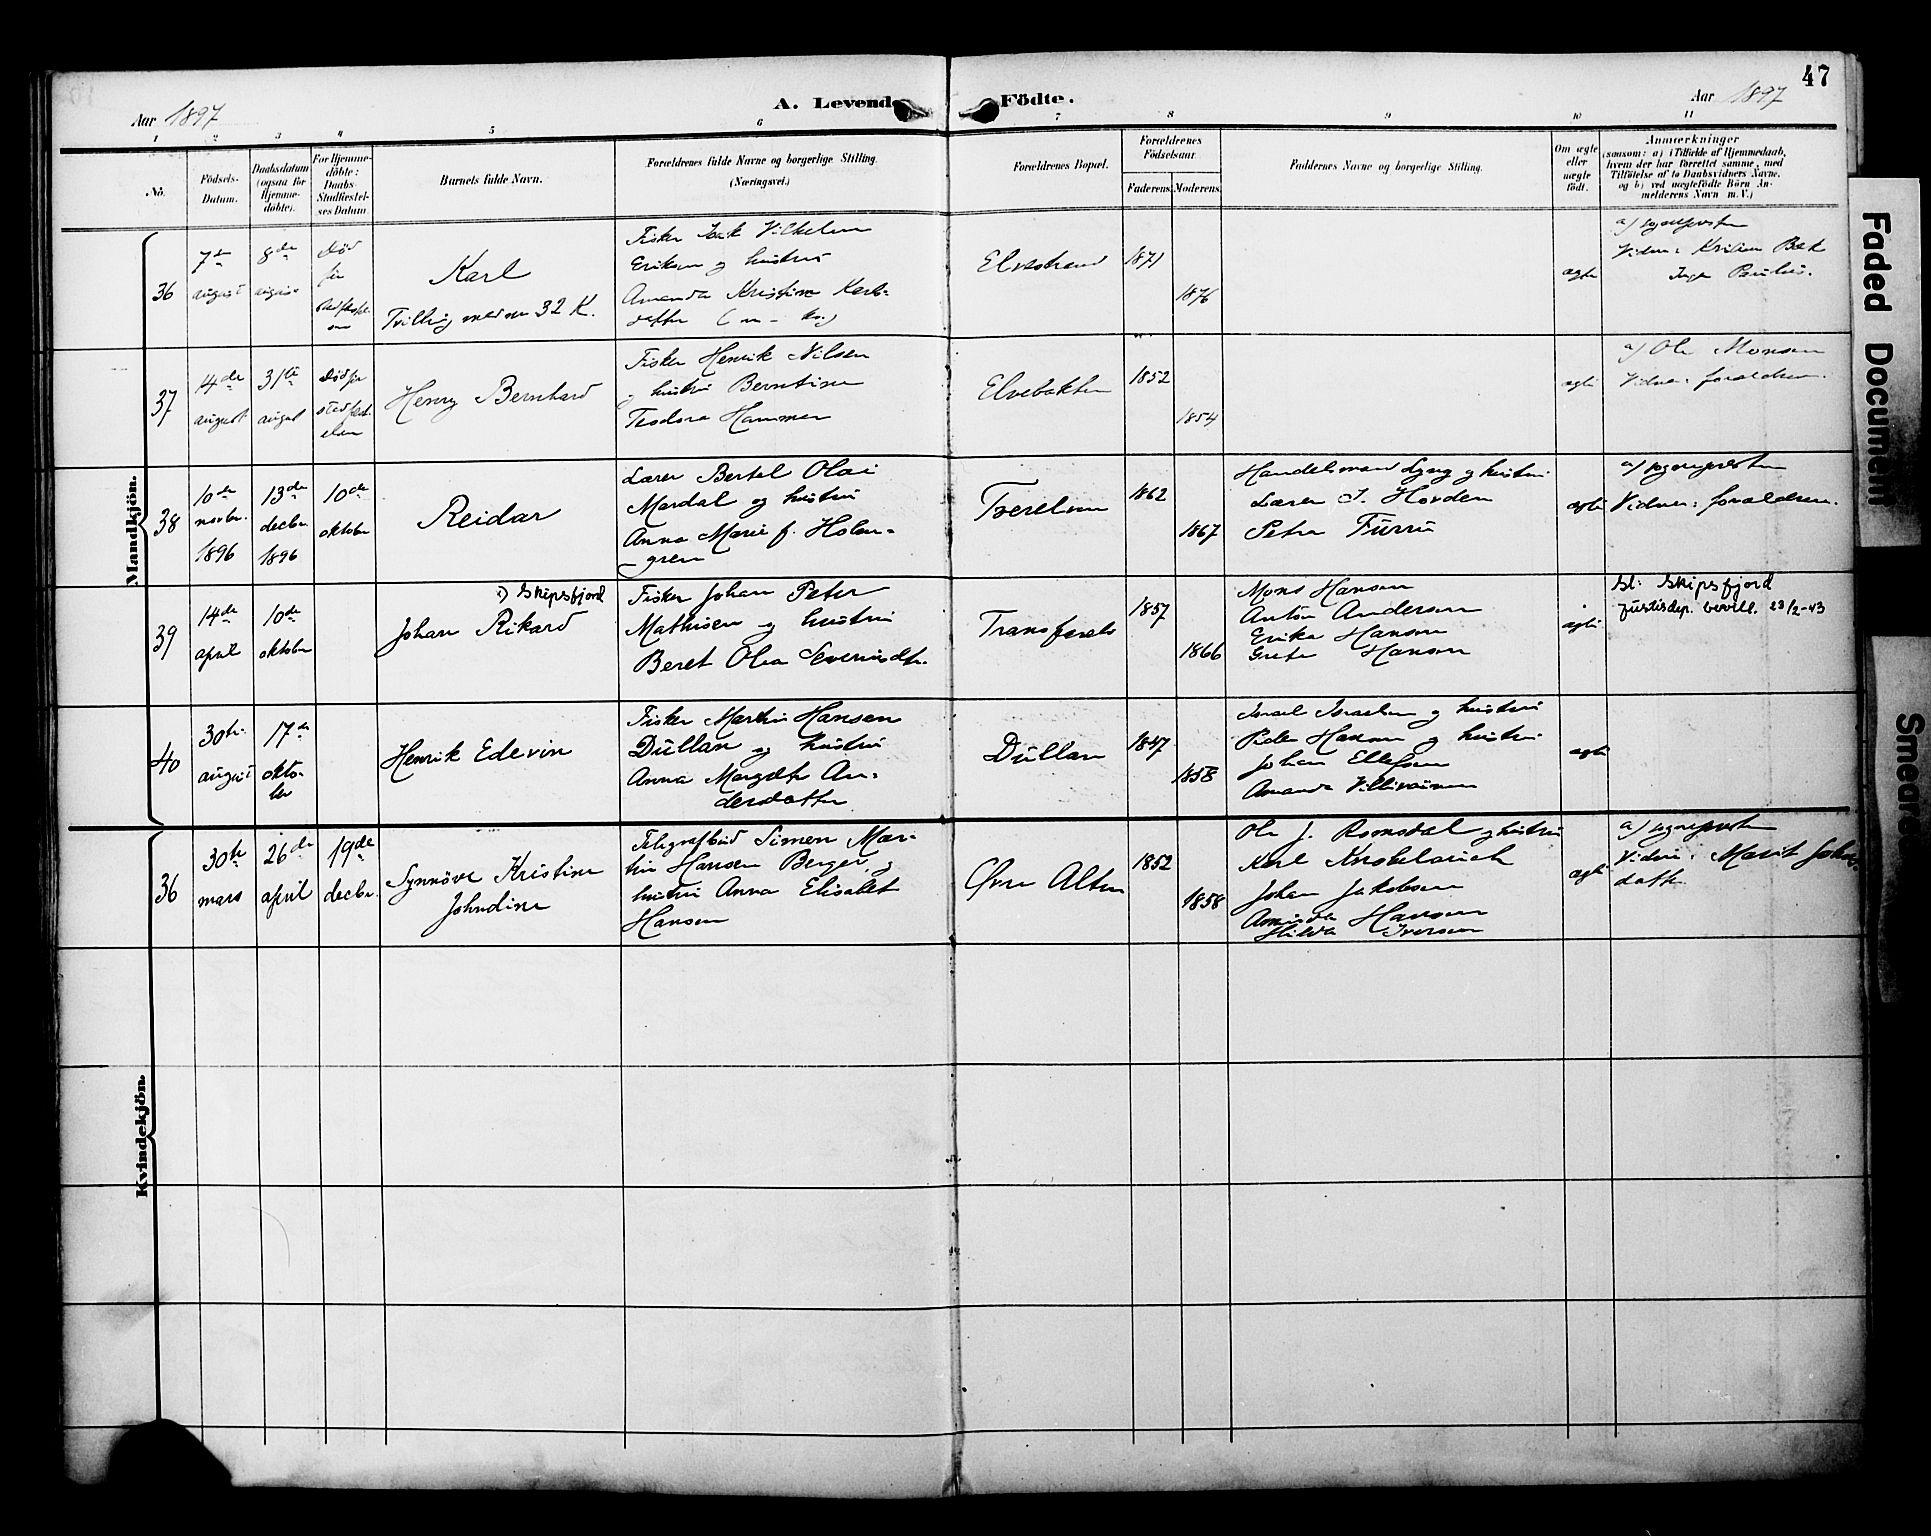 47
Aar 1897
A. Levende Födte.
Aar 1897
1 2 3 4 5 6 7 8 9 10 11
No.
Födsels-
Datum.
Daabsdatum
(ogsaa for
Hjemme-
döbte).
For Hjemme-
döbte:
Daabs-
Stadfæstel-
ses Datum
Barnets fulde Navn.
Forældrenes fulde Navne og borgerlige Stilling.
(Næringsvei.)
Forældrenes Bopæl.
Forældrenes
Födselsaar.
Faderens.
Moderens.
Faddernes Navne og borgerlige Stilling.
Om ægte
eller
uægte
födt.
Anmærkninger
(saasom: a) i Tilfælde af Hjemmedaab,
hvem der har forrettet samme, med
Tilföielse af to Daabsvidners Navne,
og b) ved uægtefödte Börn An-
melderens Navn m. V.)
Mandkjön.
36
7de
august
8de
august
Död
för
Karl
Tvilling med no 32 K.
Fisker Isak Vilhelm
Eriksen og hustru
Amanda Kristine Karls-
datter
Elvestrand
1871
1876
ægte
a) sognepresten
Vidner: Kristian Bæk
37
14de
august
31te
august
Död för
stadfæst-
elsen
Henry Bernhard
Fisker Henrik Nilsen
og hustru Berntine
Teodora Hammer
Elvebakken
1852
1854
ægte
a) Ole Monsen
Vidner: forældrene.
38
10de
novbr.
1896
13de
decbr.
1896
10de
oktober
Reidar
Lærer Bertel Olai
Mardal og hustru
Anna Marie f. Holm-
gren
Tverelven
1862
1867
Handelsmand Lyng og hustru
Lærer I. Hovden
Petra Furru
ægte
a) sognepresten
Vidner: forældrene.
39
14de
april
10de
oktober
Skipsfjord
Johan Rikard
Fisker Johan Peter
Mathisen og hustru
Beret Olea Severinsdtr.
Transfarels
1857
1866
Mons Hansen
Anton Andersen
Erika Hansen
Grete Hansen
ægte
Sl: Skipsfjord
Justisdep. bevill. 23/2-43
40
30te
august
17de
okto-
ber
Henrik Edevin
Fisker Martin Hansen
Düllan og hustru
Anna Margrete An-
dersdatter
Düllan
1847
1858
Israel Israelsen og hustru
Peder Hansen og hustru
Johan Ellefsen
Amanda
ægte
Kvindekjön.
36
30te
mars
26de
april
19de
decbr.
Synnöve Kristine
Johndine
Telegrafbud Simen Mar-
tin Hansen Berger og
hustru Anna Elisabet
Hansen
Övre Alten
1852
1858
Ole J. Romsdal og hustru
Karl Knobelauch
Johan Jakobsen
Aminda Hansen
Hilda Iversen
ægte
a) sognepresten
Vidner: Marit Johns-
datter
Faded Document
Smeared